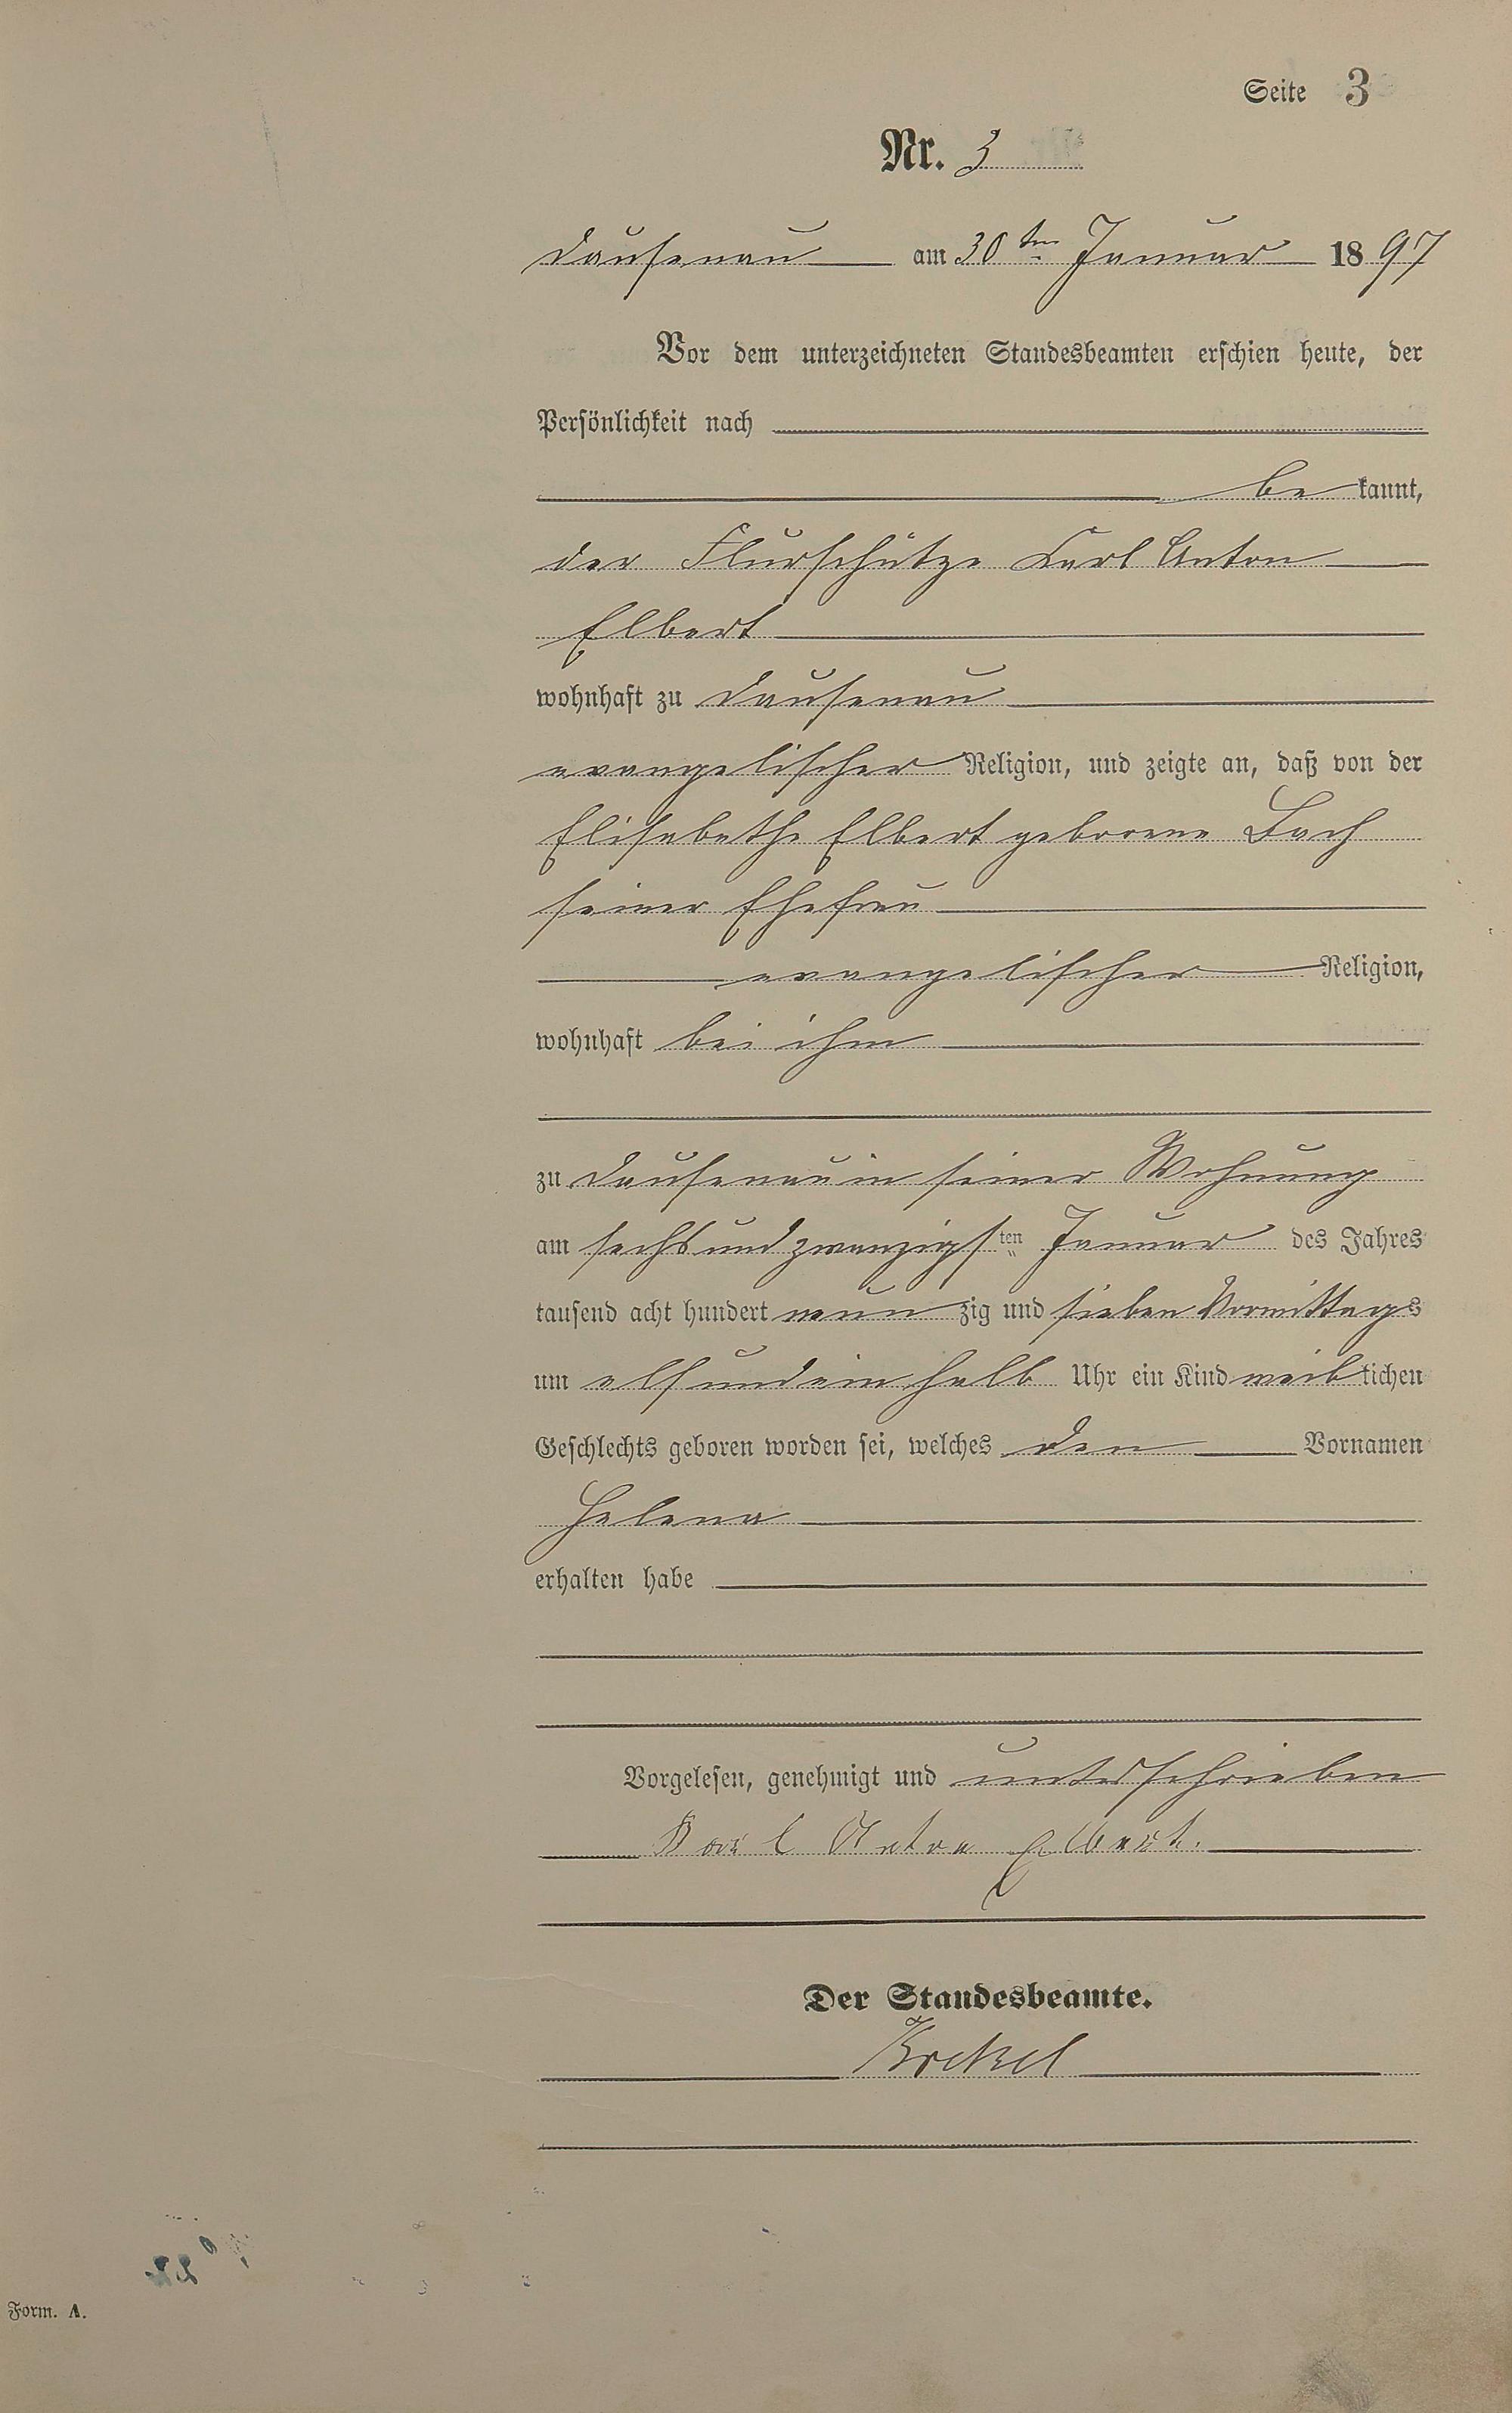 Seite 3
Nr. 3
Dausenau am 30ten Januar 1897
Vor dem unterzeichneten Standesbeamten erschien heute, der
Persönlichkeit nach
be kannt,
der Flurschütze Karl Anton
Elbert
wohnhaft zu Dausenau
evangelischer Religion, und zeigte an, daß von der
Elisabethe Elbert geborene Bach
seiner Ehefrau
evangelischer Religion,
wohnhaft bei ihm
zu Dausenau in seiner Wohnung
am sechsundzwanzigsten Januar des Jahres
tausend acht hundert neunzig und sieben Vormittags
um elfundeinhalb Uhr ein Kind weiblichen
Geschlechts geboren worden sei, welches den Vornamen
Helena
erhalten habe
Vorgelesen, genehmigt und unterschrieben
Karl Anton Elbert.
Der Standesbeamte.
Form. A.